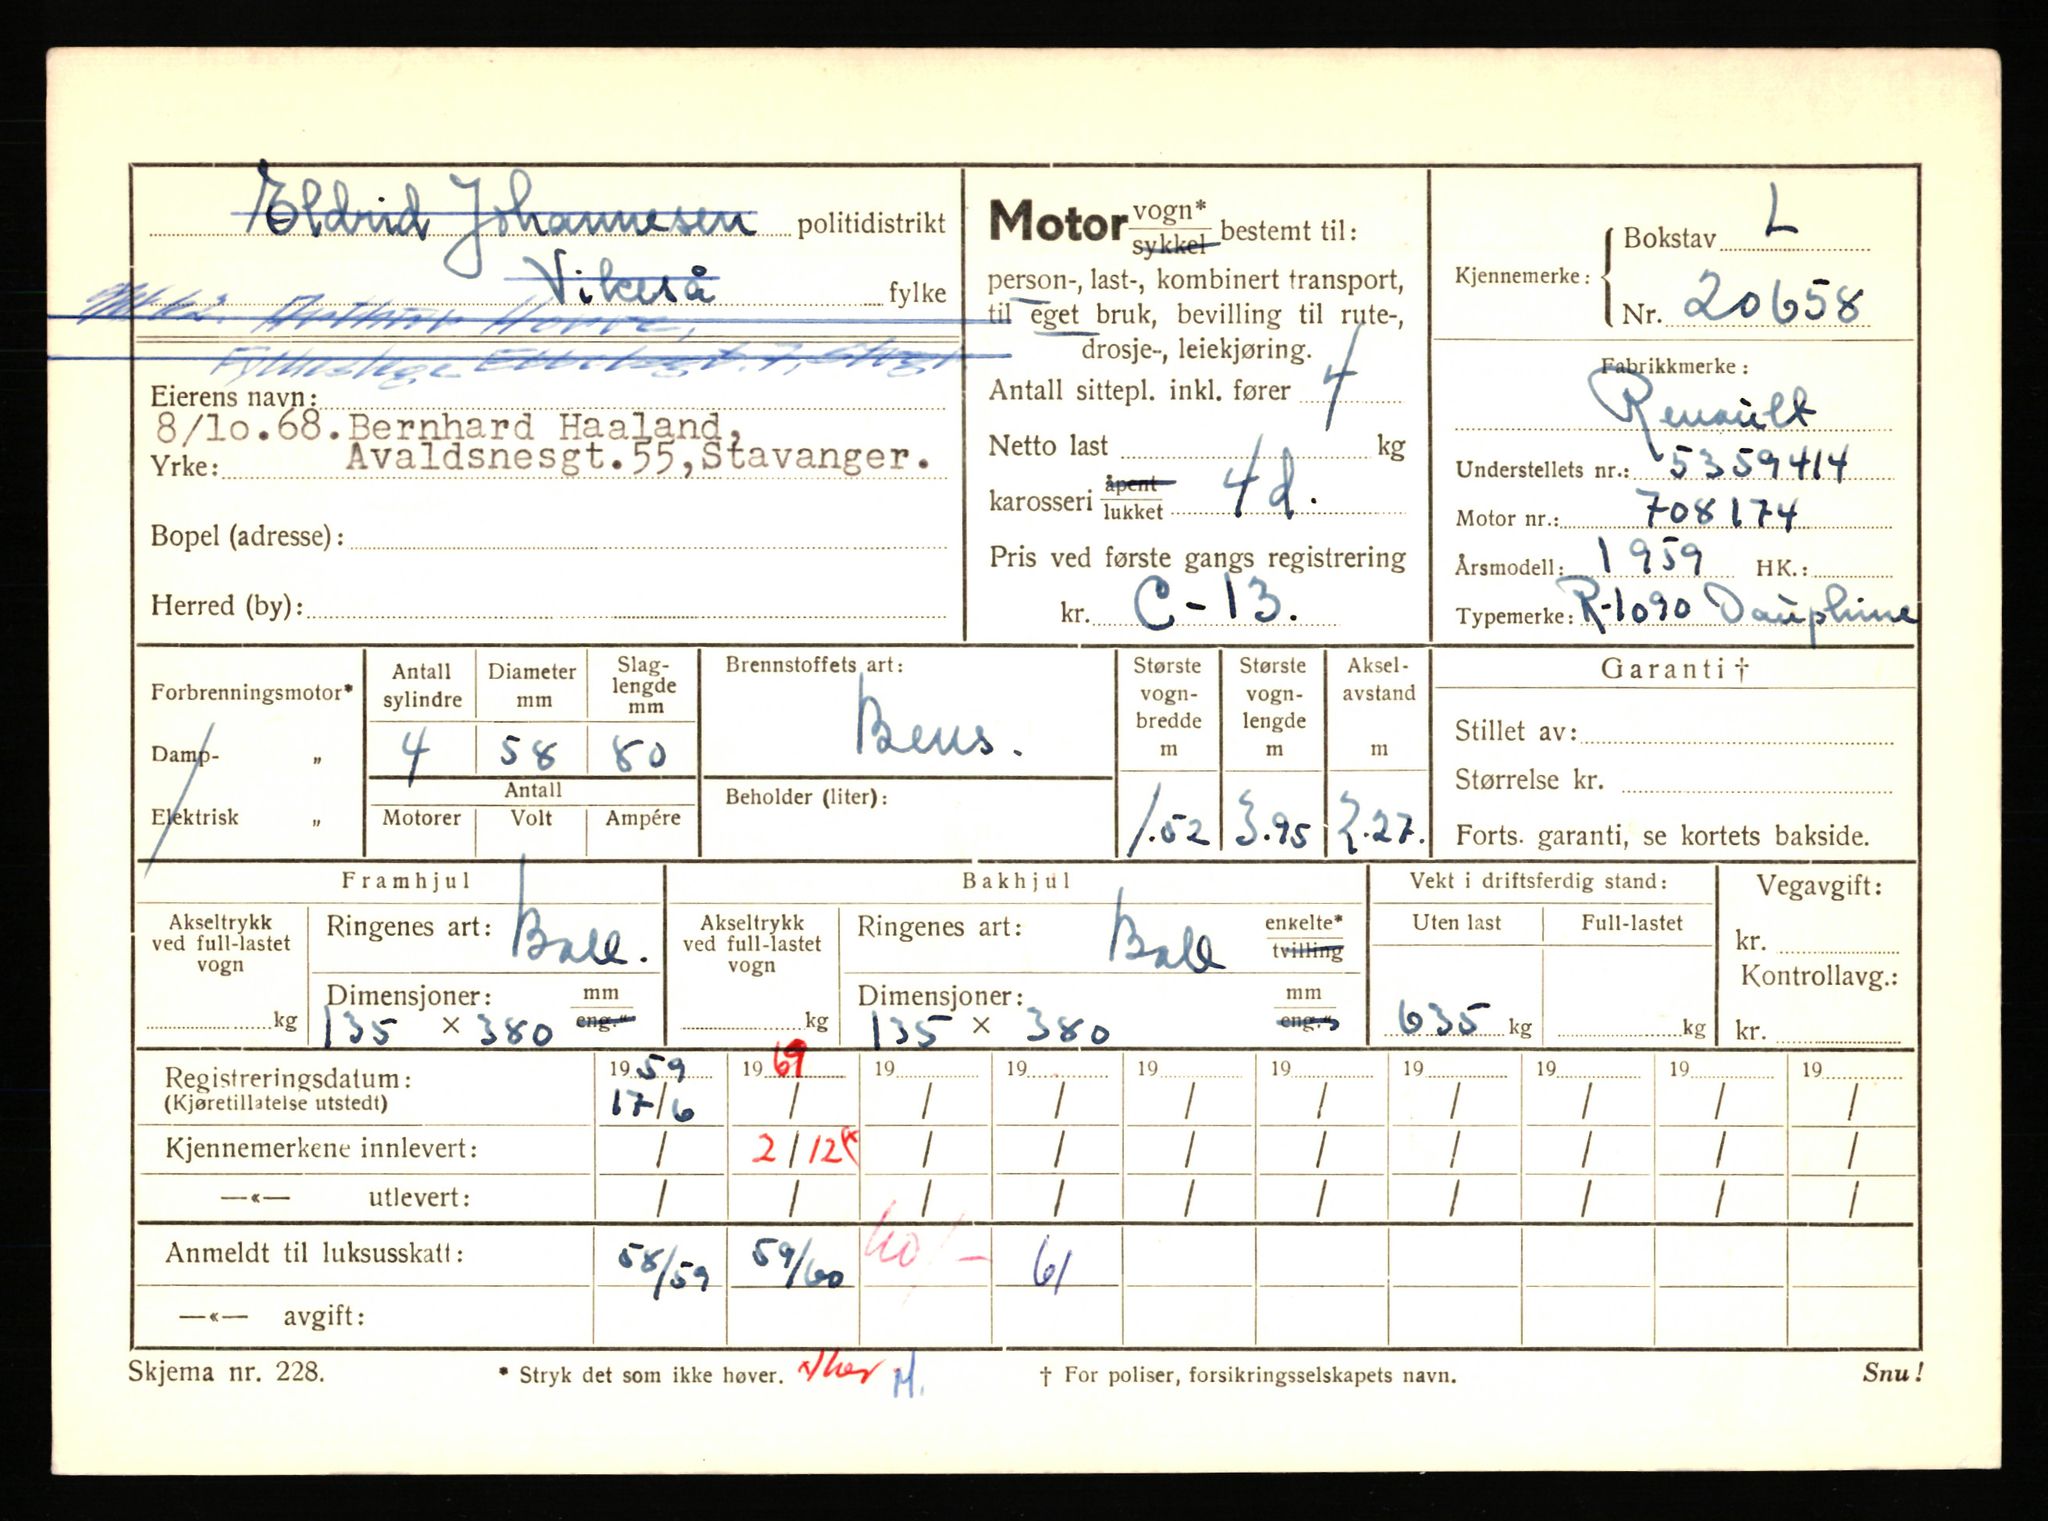 Eldrid Johannesen politidistrikt
Vikeså fylke
Arthur
Eierens navn:
8/10.68. Bernhard Haaland,
Yrke: Avaldsnesgt.55, Stavanger.
Bopel (adresse):
Herred (by):
Motor vogn* sykkel bestemt til:
person-, last-, kombinert transport,
til eget bruk, bevilling til rute-,
drosje-, leiekjøring.
Antall sittepl. inkl. fører 4
Netto last kg
karosseri åpent lukket 4d.
Pris ved første gangs registrering
kr. C-13.
Kjennemerke: Bokstav L
Nr. 20658
Fabrikkmerke:
Renault
Understellets nr.: 5359414
Motor nr.: 708174
Årsmodell: 1959 HK.:
Typemerke: R-1090 Dauphine
Forbrenningsmotor*
Damp- „
Elektrisk „
Antall sylindre Diameter mm Slag-lengde mm
4 58 80
Antall
Motorer Volt Ampére
Brennstoffets art:
Bens.
Beholder (liter):
Største vogn-bredde m Største vogn-lengde m Aksel-avstand m
1.52 3.95 2.27.
Garanti †
Stillet av:
Størrelse kr.
Forts. garanti, se kortets bakside.
Framhjul
Akseltrykk ved full-lastet vogn kg
Ringenes art: Ball.
Dimensjoner: mm eng."
135 × 380
Bakhjul
Akseltrykk ved full-lastet vogn kg
Ringenes art: Ball enkelte* tvilling
Dimensjoner: mm eng."
135 × 380
Vekt i driftsferdig stand:
Uten last Full-lastet
635 kg kg
Vegavgift:
kr.
Kontrollavg.:
kr.
19 59 19 69 19 19 19 19 19 19 19 19
Registreringsdatum:
(Kjøretillatelse utstedt) 17/6 / / / / / / / / /
Kjennemerkene innlevert: / 2/12 / / / / / / / /
—«— utlevert: / / / / / / / / / /
Anmeldt til luksusskatt: 58/59 59/60 60/- 61
—«— avgift:
Skjema nr. 228. * Stryk det som ikke høver. † For poliser, forsikringsselskapets navn. Snu!